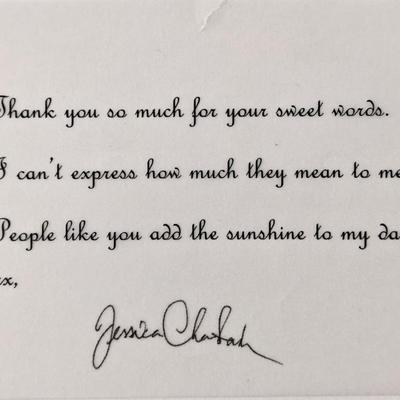 Thank you so much for your sweet words.
I can't express how much they mean to me
People like you add the sunshine to my da
xx,
Jessica